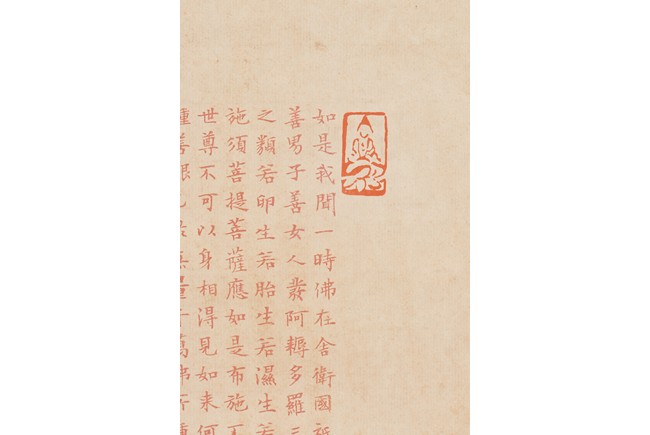 如是我聞一時佛在舍衛國祇
善男子善女人發阿耨多羅三
之類若卵生若胎生若濕生若
施須菩提菩薩應如是布施不
世尊不可以身相得見如来何
種善根已於無量千萬佛所